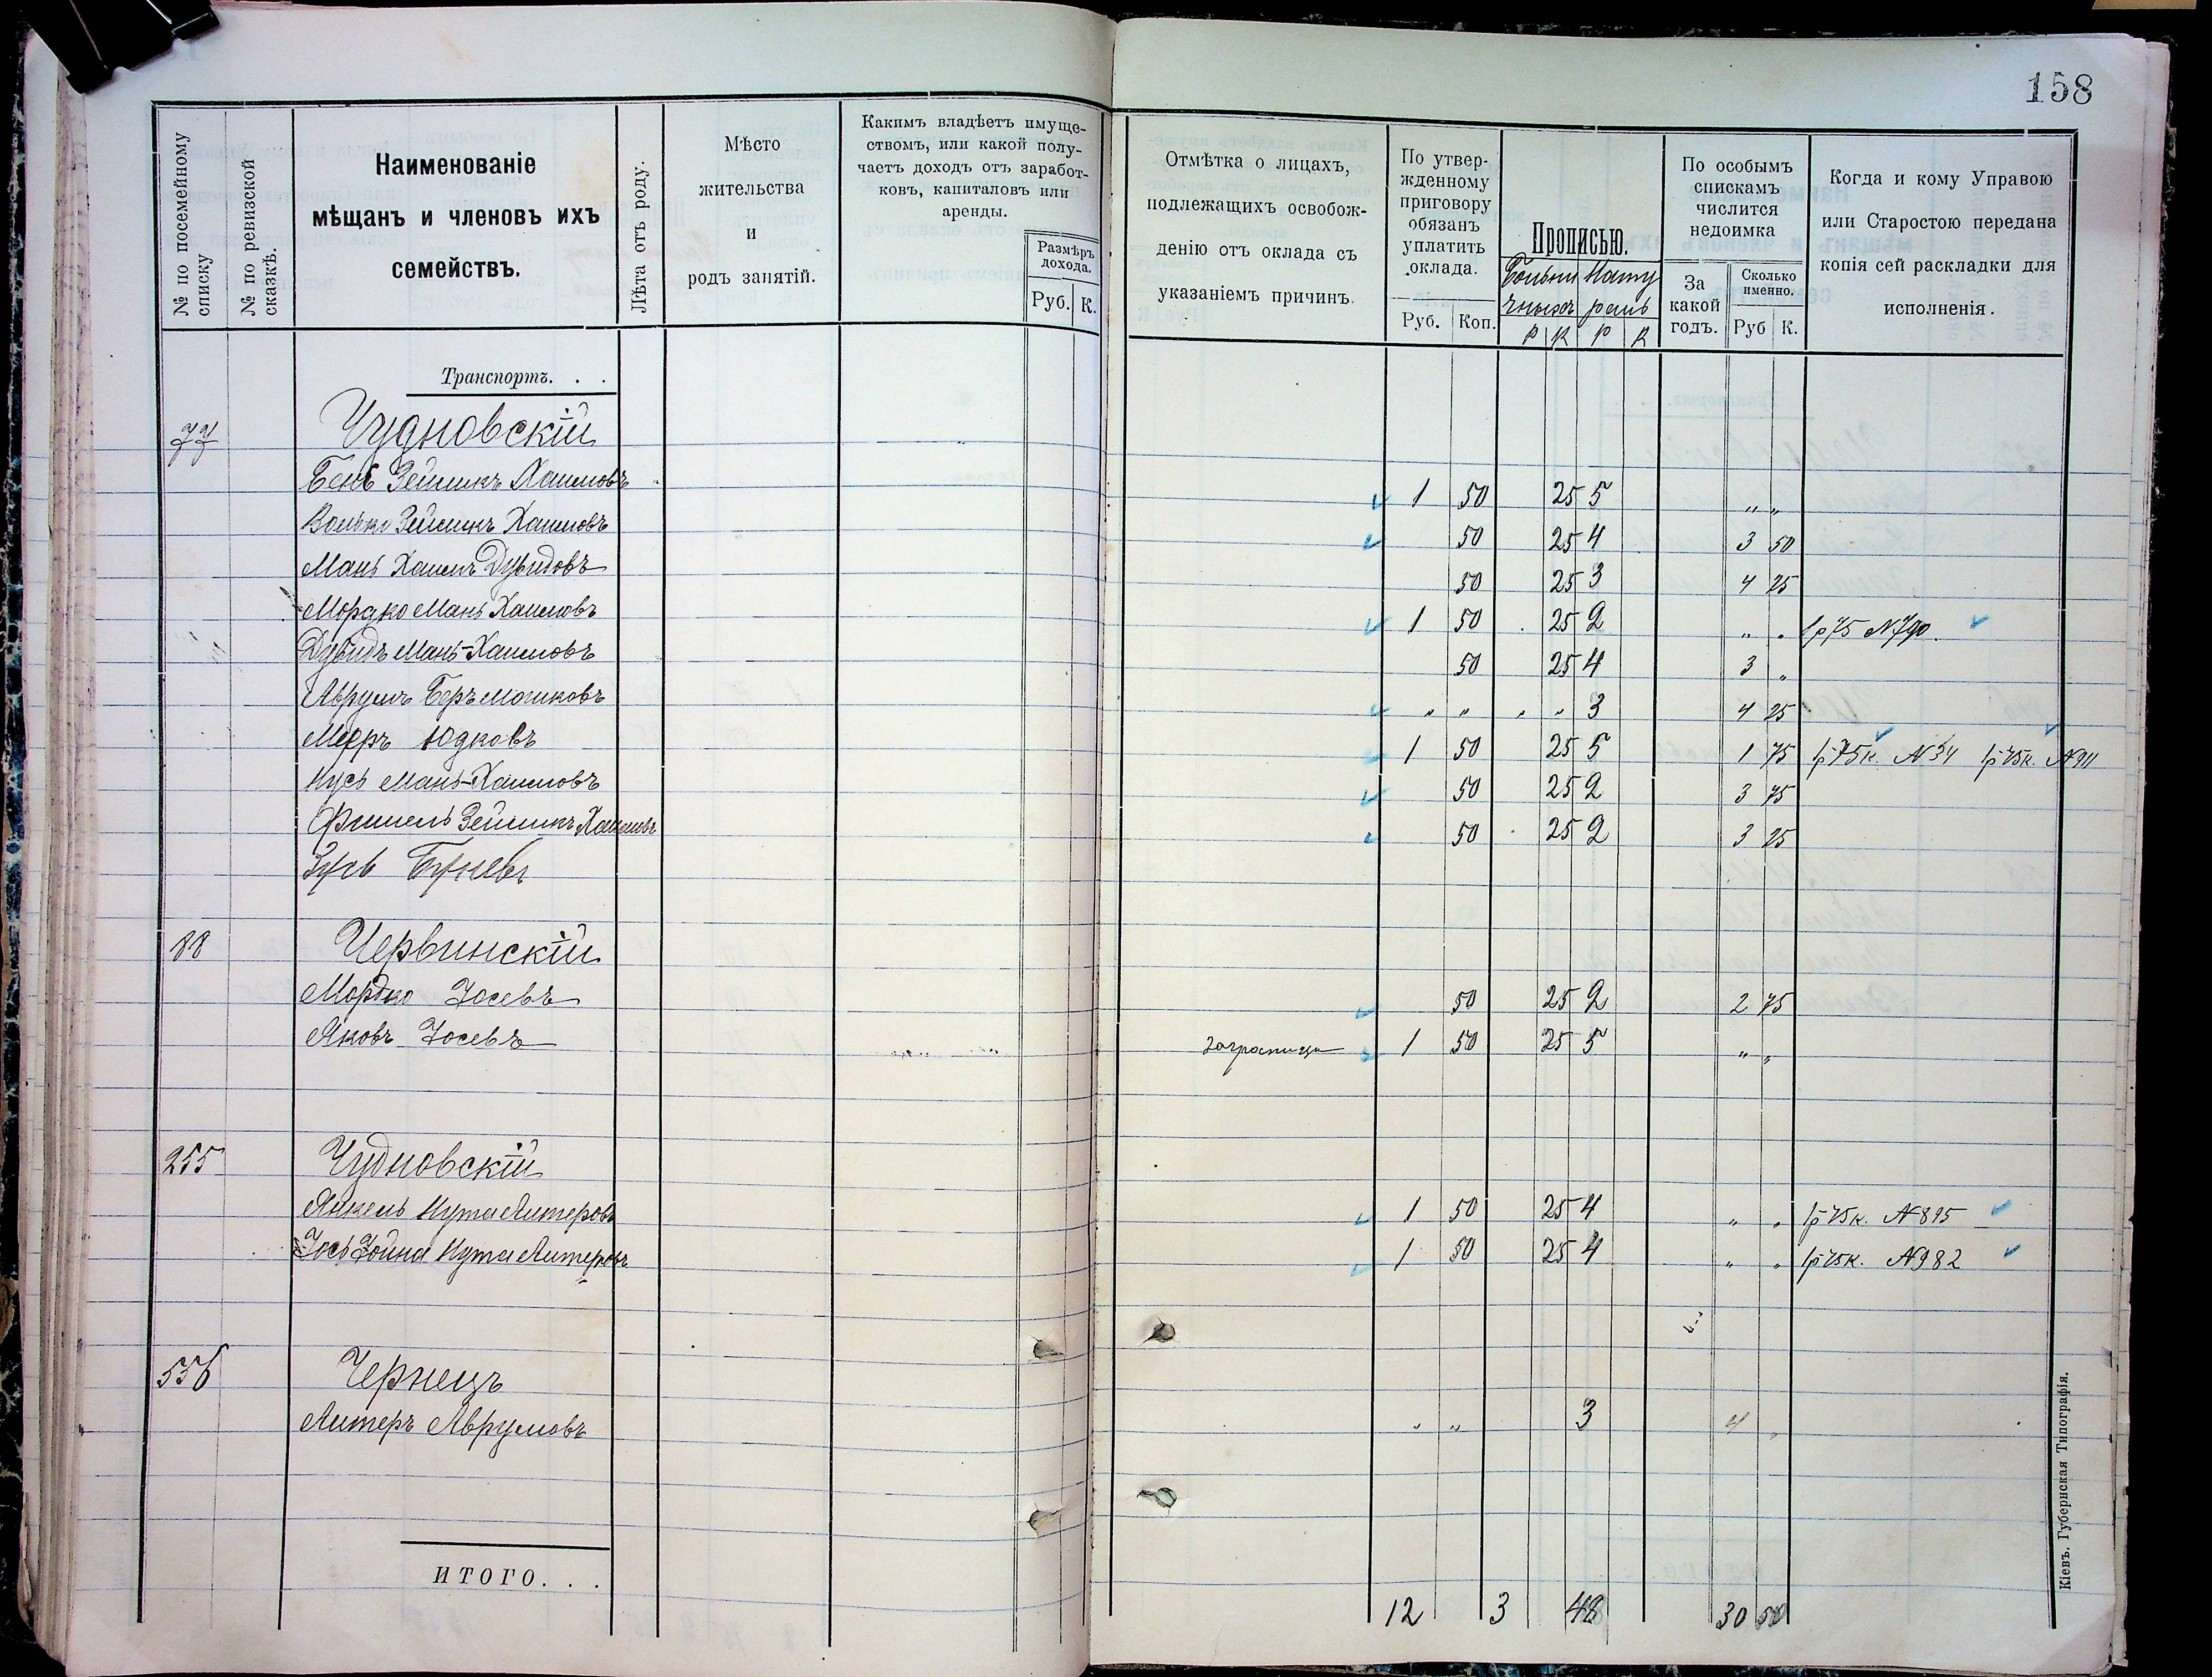 158
№ по посемейному списку
№ по ревизской сказкѣ.
Наименованіе
мѣщанъ и членовъ ихъ
семействъ.
Лѣта отъ роду.
Мѣсто
жительства
и
родъ занятій.
Какимъ владѣетъ имуще-
ствомъ, или какой полу-
чаетъ доходъ отъ заработ-
ковъ, капиталовъ или
аренды.
Размѣръ
дохода.
Руб. К.
Отмѣтка о лицахъ,
подлежащихъ освобож-
денію отъ оклада съ
указаніемъ причинъ.
По утвер-
жденному
приговору
обязанъ
уплатить
оклада.
Руб. Коп.
Прописью.
Больни Нату
чныхъ раль
Р К Р К
По особымъ
спискамъ
числится
недоимка
За
какой
годъ.
Сколько
именно.
Руб К.
Когда и кому Управою
или Старостою передана
копія сей раскладки для
исполненія.
Транспортъ. . .
77 Чудновскій
Бень Зейликъ Хаимовъ 1 50 25 5 " "
Волько Зейликъ Хаимовъ 50 25 4 3 50
Мань Хаимъ Дувидовъ 50 25 3 4 25
Мордко Мань Хаимовъ 1 50 25 2 " " 1р75 N790.
Дувидъ Мань-Хаимовъ 50 25 4 3 "
Аврумъ Беръ Мошковъ " " " " 3 4 25
Мееръ Юдковъ 1 50 25 5 1 75 1р75к. N34 1р75к. N911
Нусь Мань-Хаимовъ 50 25 2 3 75
Фишель Зейликъ Хаимовъ 50 25 2 3 25
88 Червинскій
Мордко Іосевъ 50 25 2 2 75
Яковъ Іосевъ заграницу 1 50 25 5 " "
255 Чудновскій
Янкель Нута Алтеровъ 1 50 25 4 " " 1р75к. N895
Іось Іойна Нута Алтеровъ 1 50 25 4 " " 1р75к. N982
556 Чернецъ
Алтеръ Аврумовъ " " 3 4 "
ИТОГО. . .
12 3 48 30 50
Кіевъ. Губернская Типографія.